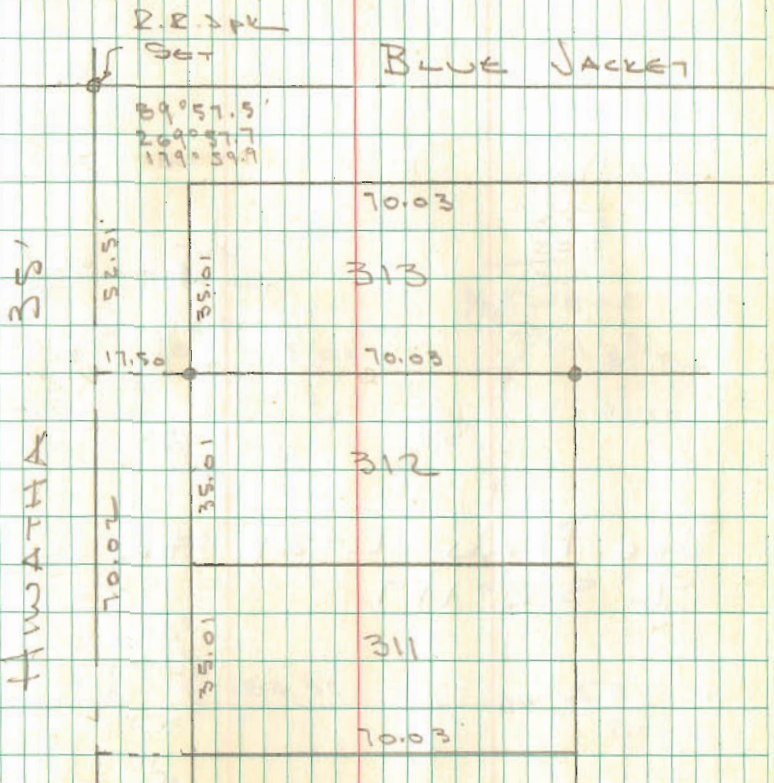 R.R. Spk
Set
BLUE JACKET
89°57.5'
269°57.7
179°59.9
70.03
35'
52.51'
35.01
313
17.50
70.03
HIWATHA
70.02
35.01
312
35.01
311
70.03